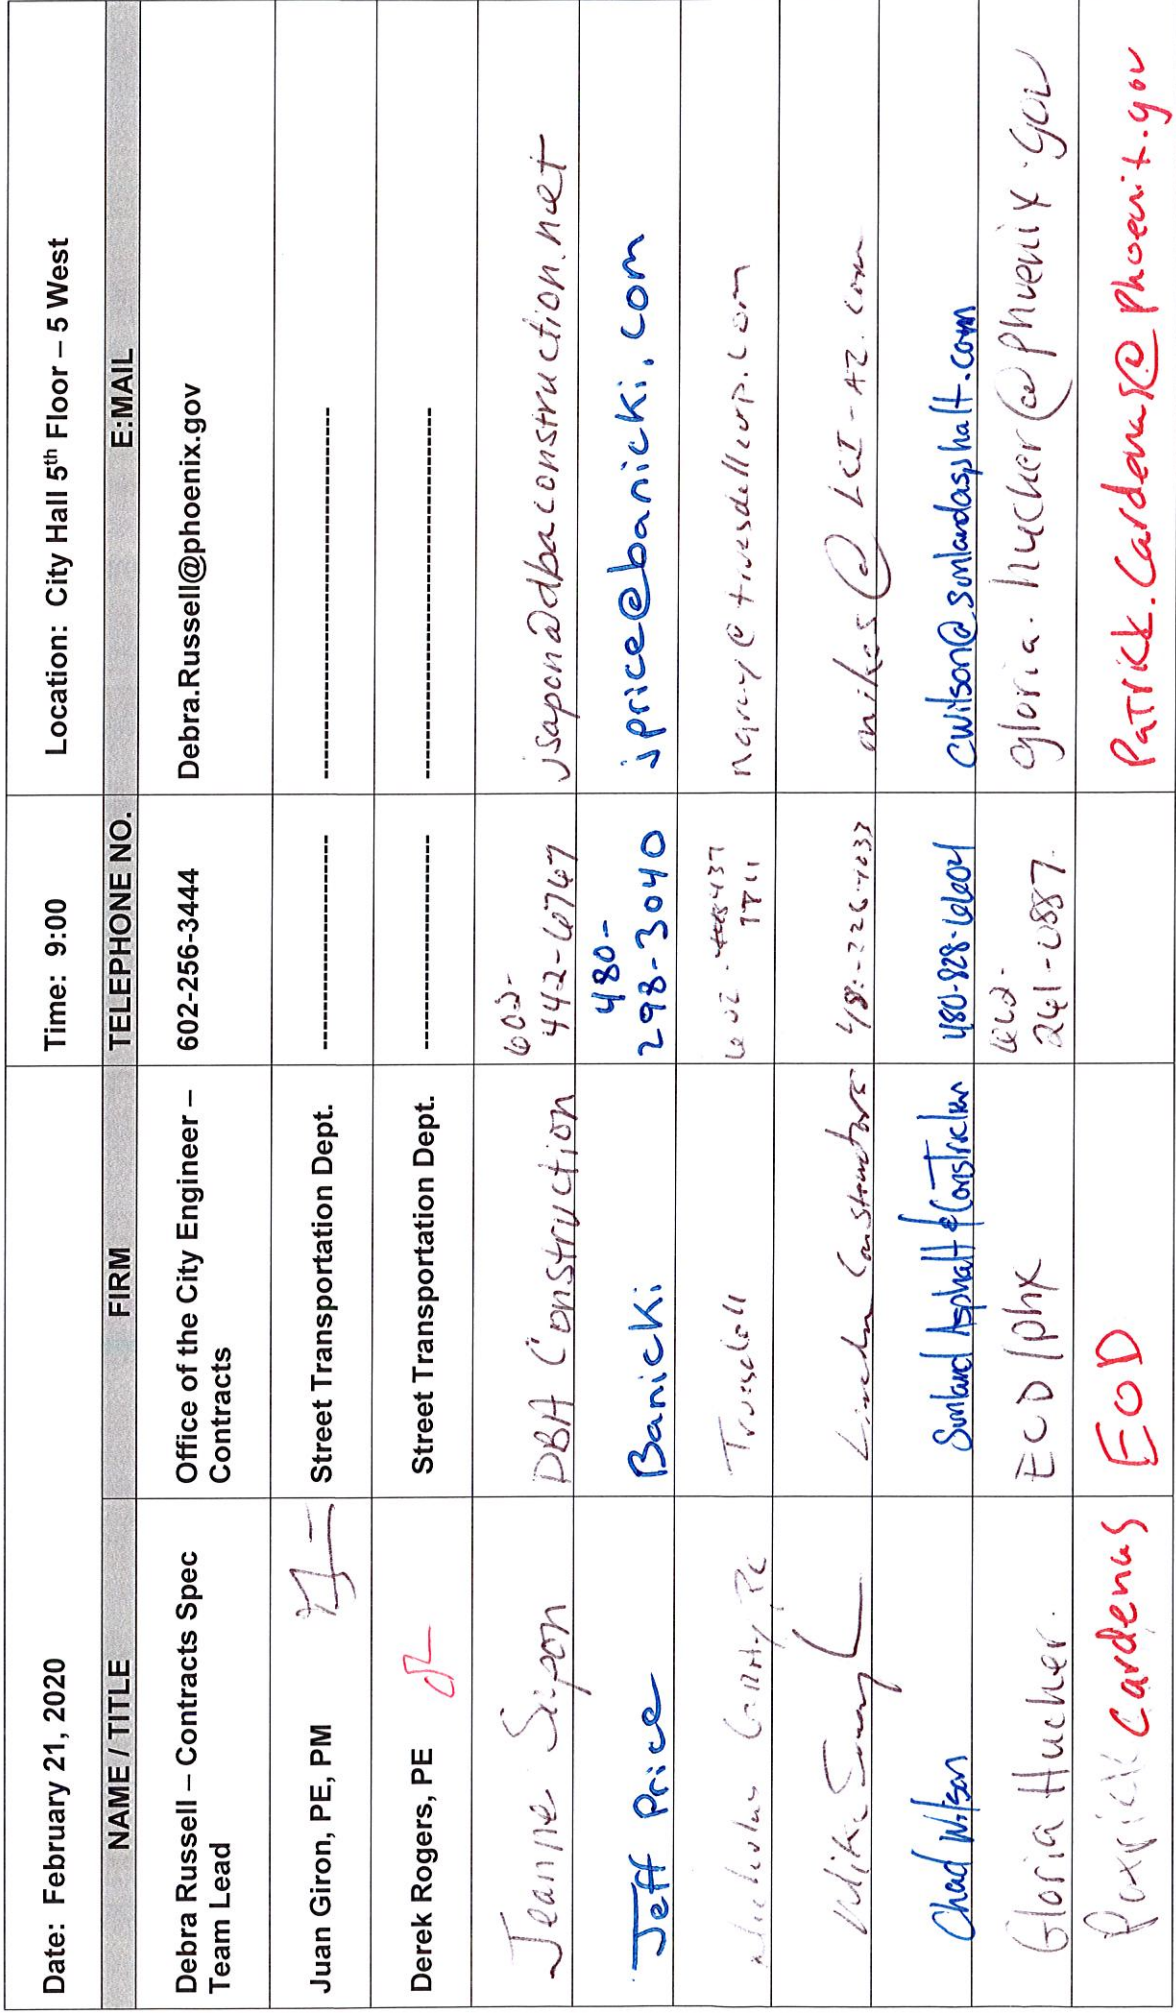 Date: February 21, 2020 Time: 9:00 Location: City Hall 5th Floor – 5 West
NAME / TITLE FIRM TELEPHONE NO. E:MAIL
Debra Russell – Contracts Spec Team Lead Office of the City Engineer – Contracts 602-256-3444 Debra.Russell@phoenix.gov
Juan Giron, PE, PM Street Transportation Dept. -------------------- ------------------------------------
Derek Rogers, PE DR Street Transportation Dept. -------------------- ------------------------------------
Jeanne Sapon DBA Construction 602-442-6767 jsapon@dbaconstruction.net
Jeff Price Banicki 480-298-3040 jprice@banicki.com
Truesdell 602- 437 1711 @truesdellcorp.com
Mike Constructors 480-226-4033 mikes@LCI-AZ.com
Chad Wilson Sunland Asphalt & Construction 480-828-6604 cwilson@sunlandasphalt.com
Gloria Hucher. EOD/phx 602-261-8887. gloria.hucher@phoenix.gov
Patrick Cardenas EOD Patrick.Cardenas@Phoenix.gov